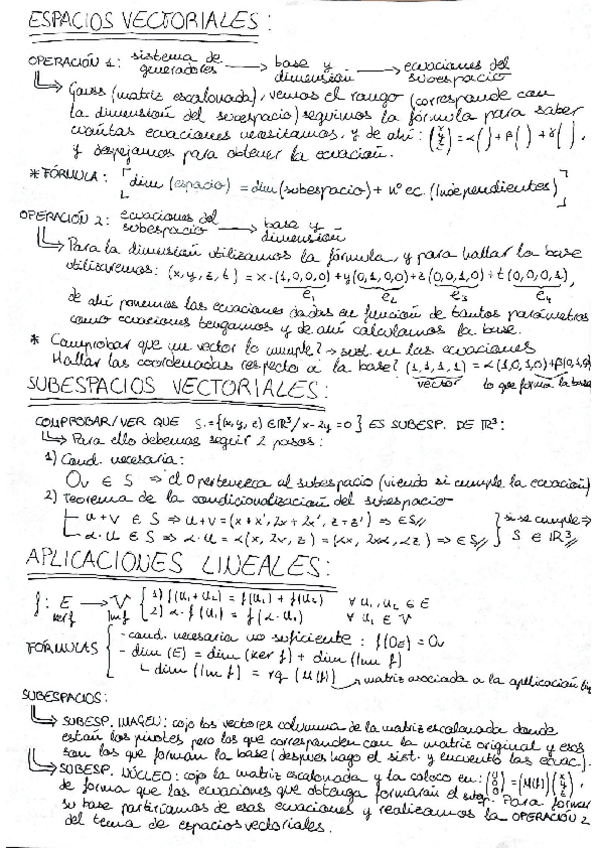 ESPACIOS VECTORIALES:
OPERACIÓN 1: sistema de generadores → base y dimensión → ecuaciones del subespacio
Gauss (matriz escalonada), vemos el rango (corresponde con
la dimensión del subespacio) seguimos la fórmula para saber
cuántas ecuaciones necesitamos, y de ahí: (x y z) = α( ) + β( ) + γ( ).
y despejamos para obtener la ecuación.
* FÓRMULA: [dim (espacio) = dim (subespacio) + nº ec. (independientes)]
OPERACIÓN 2: ecuaciones del subespacio → base y dimensión
Para la dimensión utilizamos la fórmula, y para hallar la base
utilizaremos: (x, y, z, t) = x·(1,0,0,0) + y(0,1,0,0) + z(0,0,1,0) + t(0,0,0,1),
e1 e2 e3 e4
de ahí ponemos las ecuaciones dadas en función de tantos parámetros
como ecuaciones tengamos y de ahí calculamos la base.
* Comprobar que un vector lo cumple? → sust. en las ecuaciones
Hallar las coordenadas respecto a la base? (1,1,1,1) = α(1,0,1,0) + β(0,1,0
vector lo que forma la base
SUBESPACIOS VECTORIALES:
COMPROBAR/VER QUE S = {(x, y, z) ∈ ℝ³ / x - 2y = 0} ES SUBESP. DE ℝ³:
Para ello debemos seguir 2 pasos:
1) Cond. necesaria:
Ov ∈ S ⇒ el 0 pertenezca al subespacio (viendo si cumple la ecuación)
2) Teorema de la condicionalización del subespacio
u + v ∈ S ⇒ u + v = (x + x', 2x + 2x', z + z') ⇒ ∈ S// } si se cumple ⇒
α·u ∈ S ⇒ α·u = α(x, 2x, z) = (αx, 2xα, αz) ⇒ ∈ S// S ∈ ℝ³//
APLICACIONES LINEALES:
f: E → V { 1) f(u1 + u2) = f(u1) + f(u2) ∀ u1, u2 ∈ E
ker f Im f 2) α·f(u1) = f(α·u1) ∀ u1 ∈ V
FÓRMULAS { - cond. necesaria no suficiente: f(OE) = Ov
- dim (E) = dim (ker f) + dim (Im f)
dim (Im f) = rg (M(f)) → matriz asociada a la aplicación
SUBESPACIOS:
SUBESP. IMAGEN: cojo los vectores columna de la matriz escalonada donde
están los pivotes pero los que corresponden con la matriz original y esos
son los que forman la base (después hago el sist. y encuentro las ecuac.).
SUBESP. NÚCLEO: cojo la matriz escalonada y la coloco en: (0 0 0) = (M(f)) (x y z),
de forma que las ecuaciones que obtenga formarán el subesp. Para formar
su base partiríamos de esas ecuaciones y realizamos la OPERACIÓN 2
del tema de espacios vectoriales.